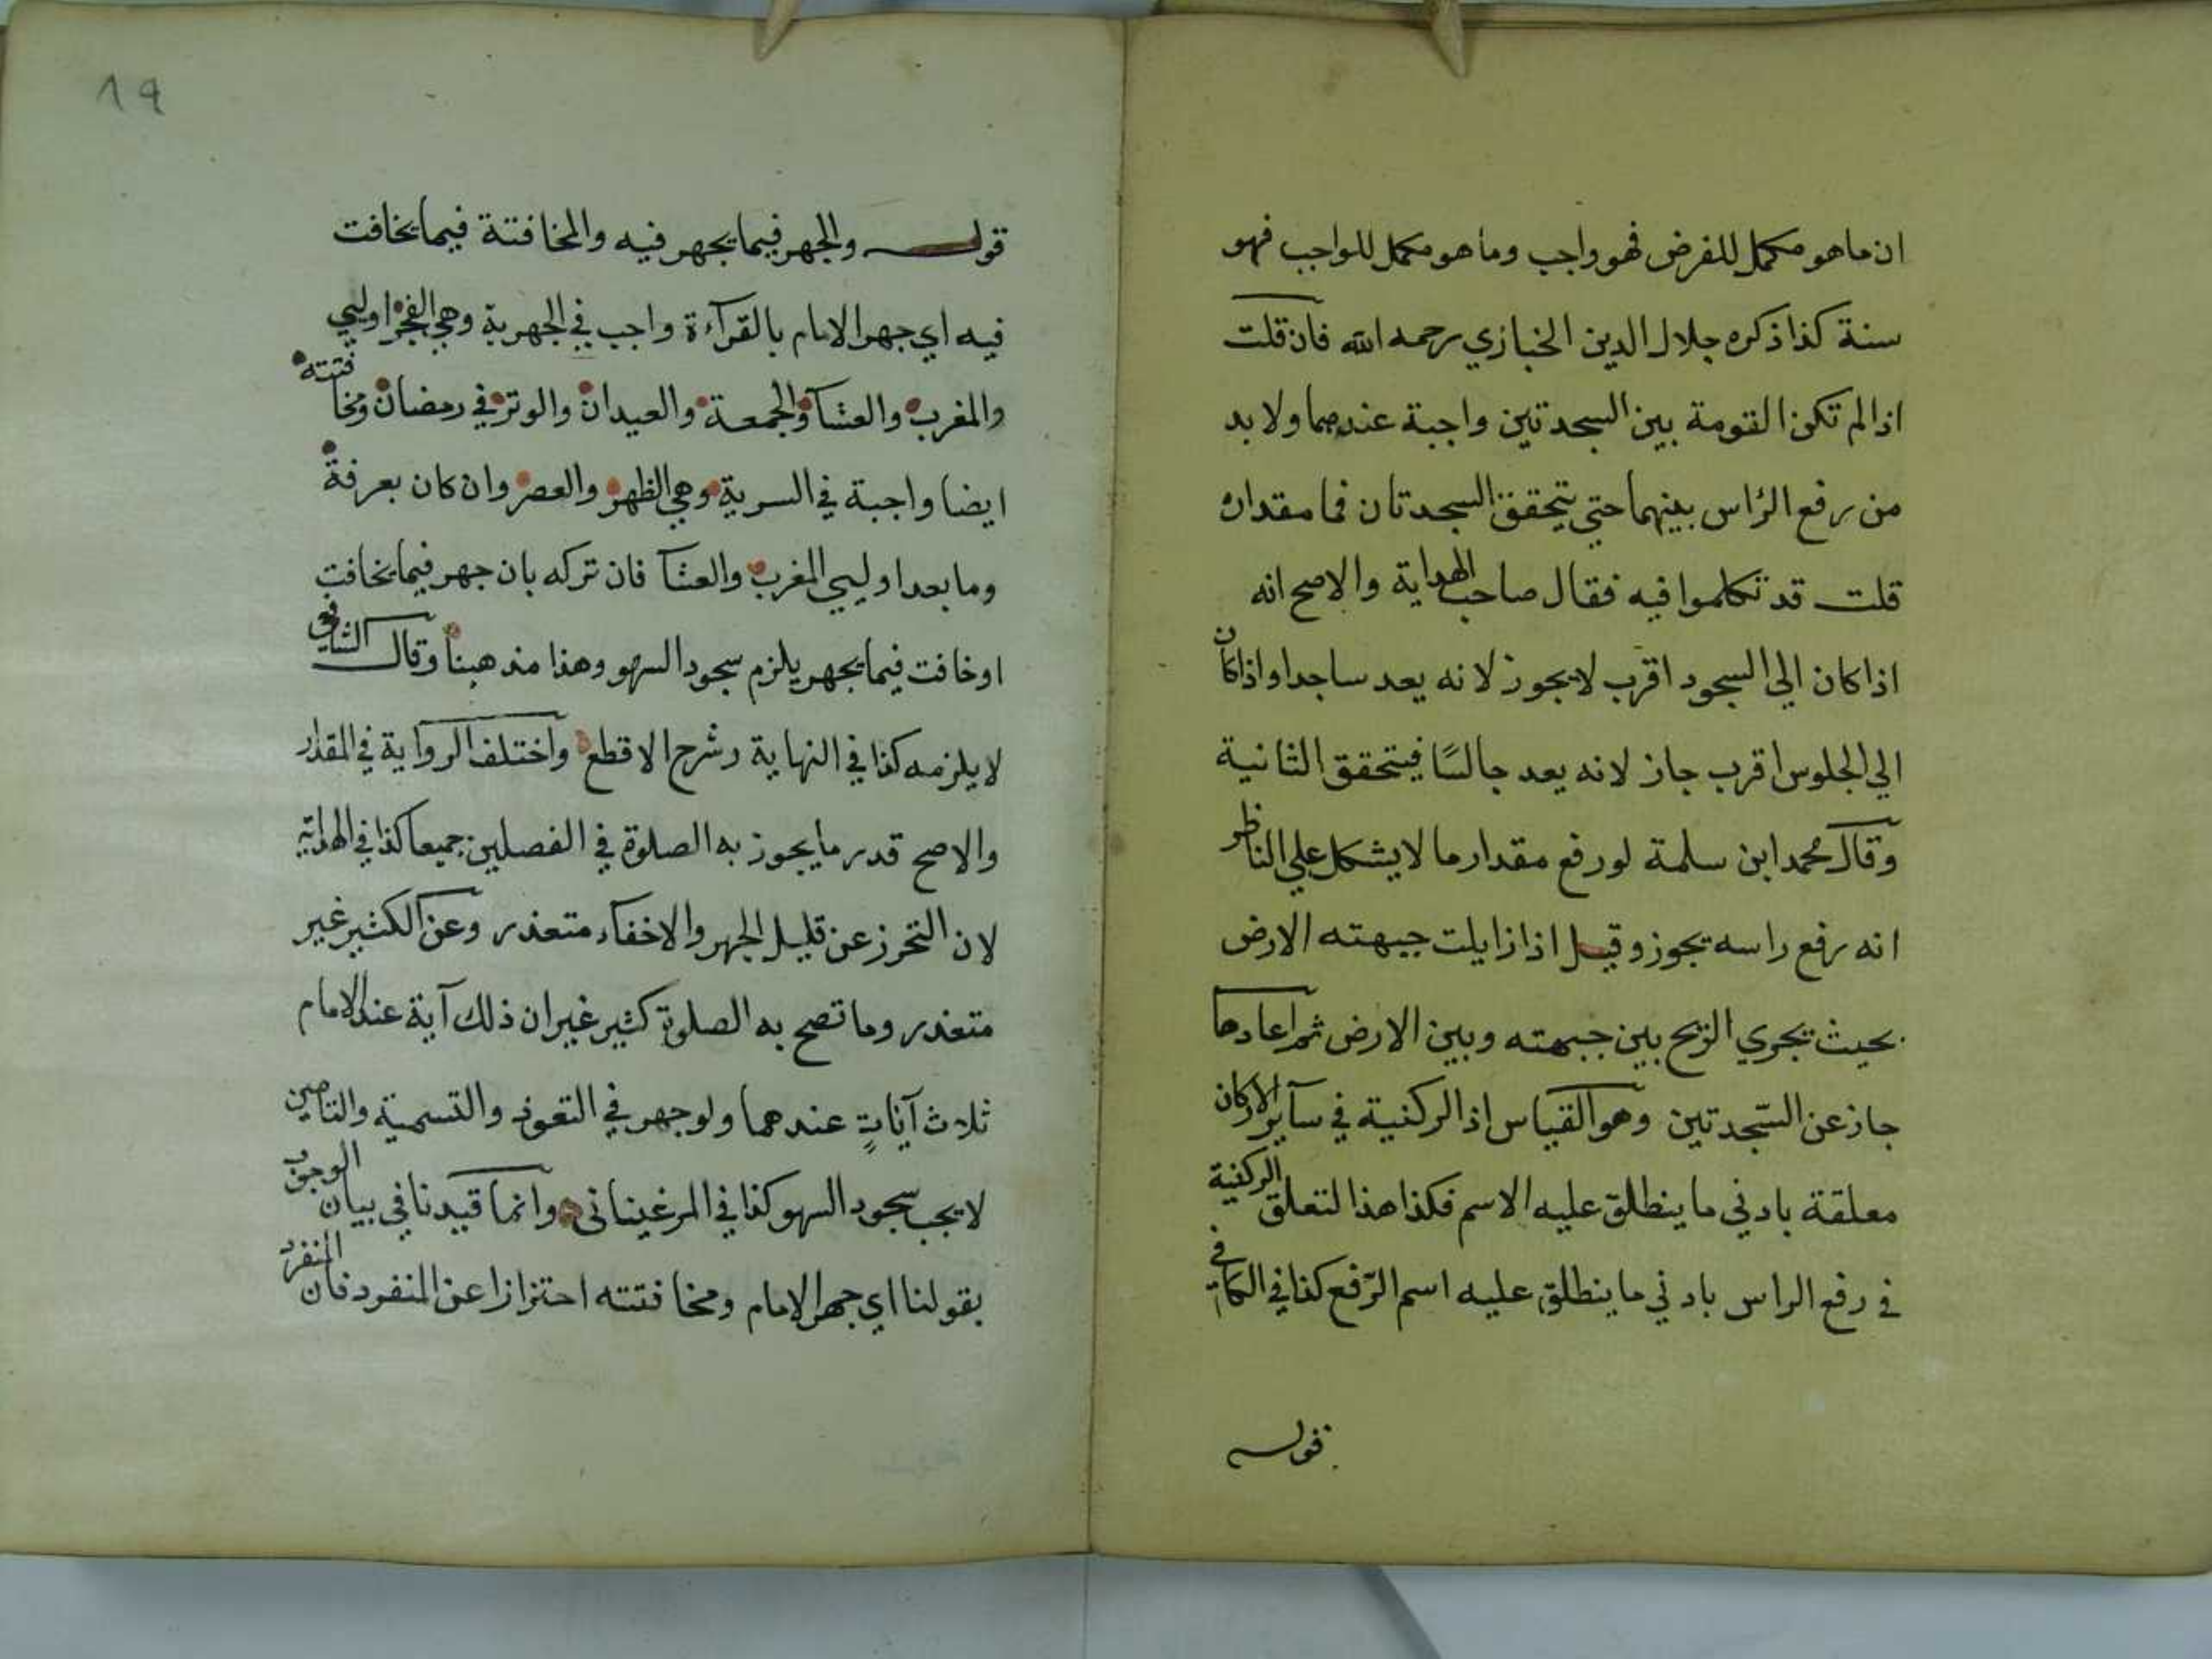 ان ماهو مكمل للفرض فهو واجب وماهو مكمل للواجب فهو
سنة كذا ذكره جلال الدين الخبازي رحمه الله فان قلت
اذا لم تكن القومة بين السجدتين واجبة عندهما ولا بد
من رفع الرأس بينهما حتي يتحقق السجدتان فما مقداره
قلت قد تكلموا فيه فقال صاحب الهداية والاصح انه
اذا كان الي السجود اقرب لايجوز لانه يعد ساجدا واذا كان
الي الجلوس اقرب جاز لانه يعد جالسًا فيتحقق الثانية
وقال محمد ابن سلمة لو رفع مقدار ما لا يشكل علي الناظر
انه رفع راسه يجوز وقيل اذا زايلت جبهته الارض
بحيث تجري الريح بين جبهته وبين الارض ثم اعادها
جاز عن السّجدتين وهو القياس اذ الركنية في سآير الاركان
معلقة بادني ما ينطلق عليه الاسم فكذا هذا لتعلق الركنية
في رفع الراس بادني ما ينطلق عليه اسم الرّفع كذا في الكافي
قوله
١٩
قوله والجهر فيما يجهر فيه والمخافتة فيما يخافت
فيه اي جهر الامام بالقرآءة واجب في الجهرية وهي الفجر اوليي
والمغرب والعشآ والجمعة والعيدان والوتر في رمضان ومخافتته
ايضا واجبة في السرية وهي الظهر والعصر وان كان بعرفة
وما بعد اوليي المغرب والعشآ فان تركه بان جهر فيما يخافت
او خافت فيما يجهر يلزم سجود السهو وهذا مذهبنا وقال الشافعي
لا يلزمه كذا في النهاية وشرح الاقطع واختلف الرواية في المقدار
والاصح قدر ما يجوز به الصلوة في الفصلين جميعا كذا في الهداية
لان التحرز عن قليل الجهر والاخفاء متعذر وعن الكثير غير
متعذر وما تصح به الصلوة كثير غير ان ذلك آية عند الامام
ثلاث آيات عندهما ولو جهر في التعوذ والتسمية والتامين
لا يجب سجود السهو كذا في المرغيناني وانما قيدنا في بيان الوجوب
بقولنا اي جهر الامام ومخافتته احترازا عن المنفرد فان المنفرد